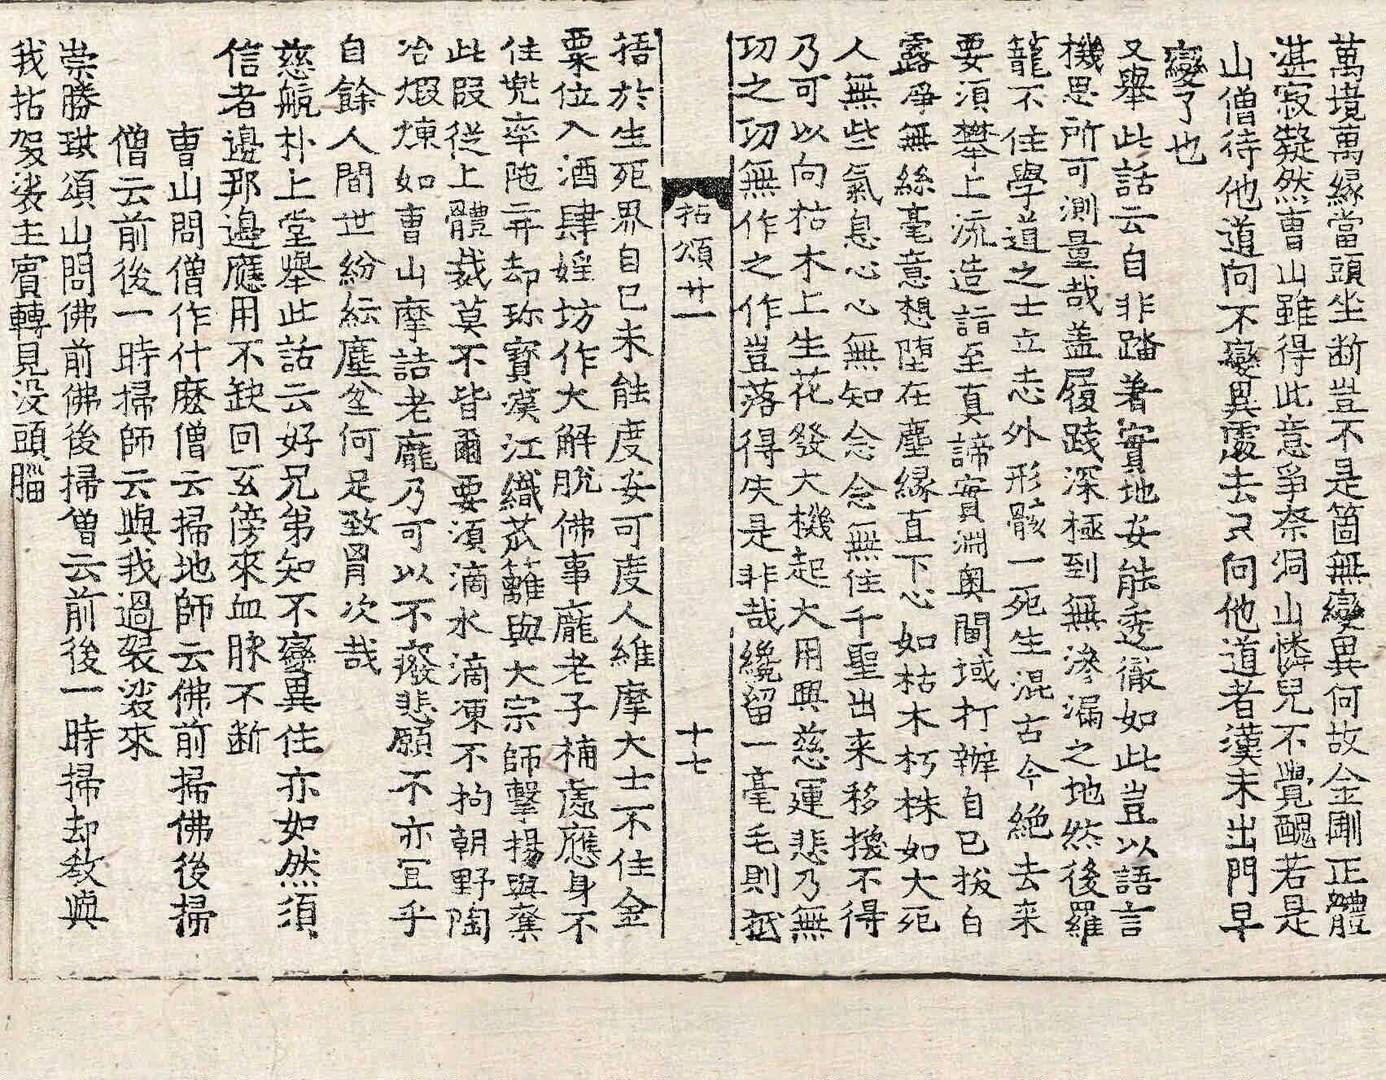 萬境萬緣當頭坐斷豈不是箇無變異何故金剛正體
湛寂凝然曹山雖得此意爭奈洞山憐兒不覺醜若是
山僧待他道向不變異處去只向他道者漢未出門早
變了也
又擧此話云自非踏著實地安能透徹如此豈以語言
機思所可測量哉盖履踐深極到無滲漏之地然後羅
籠不住學道之士立志外形骸一死生混古今絶去来
要須攀上流造詣至真諦實淵奥閫域打辦自己拔白
露淨無絲毫意想墮在塵緣直下心如枯木朽株如大死
人無些氣息心心無知念念無住千聖出来移換不得
乃可以向枯木上生花發大機起大用興慈運悲乃無
功之功無作之作豈落得失是非哉纔留一毫毛則抵
拈頌廿一
十七
捂於生死界自己未能度安可度人維摩大士不住金
粟位入酒肆婬坊作大解脫佛事龐老子補處應身不
住兜率陁弃却珎寳漢江織笊籬與大宗師擊揚與奪
此段從上體裁莫不皆爾要須滴水滴凍不拘朝野陶
冶煆煉如曹山摩詰老龐乃可以不癈悲願不亦冝乎
自餘人間世紛紜塵坌何足致胷次哉
慈航朴上堂擧此話云好兄弟知不變異住亦如然須
信者邊那邊應用不缺回玄傍來血脉不断
曺山問僧作什麽僧云掃地師云佛前掃佛後掃
僧云前後一時掃師云與我過袈裟來
崇勝珙頌山問佛前佛後掃僧云前後一時掃却敎與
我拈袈裟主賓轉見没頭腦